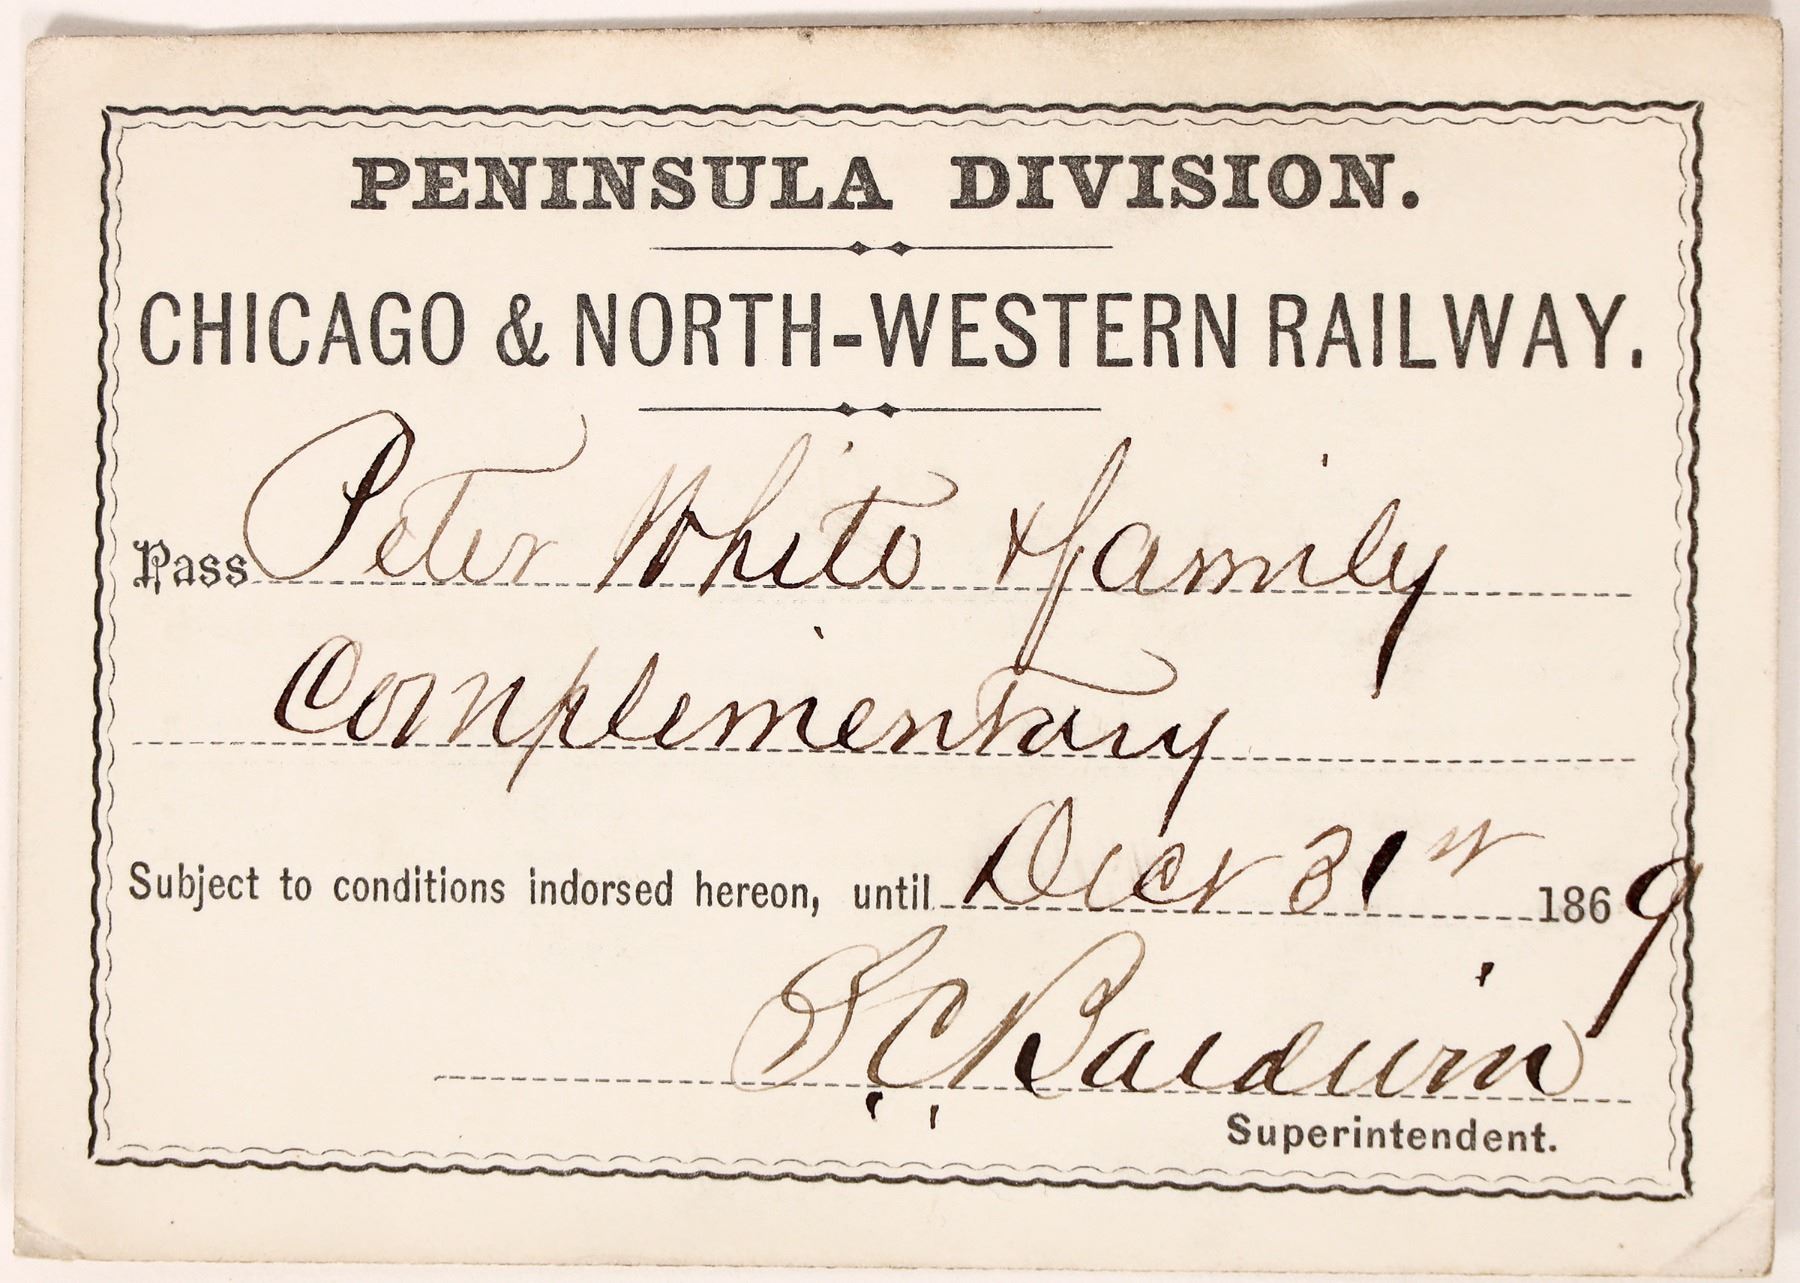 PENINSULA DIVISION.
CHICAGO & NORTH-WESTERN RAILWAY.
Pass Peter White & family
Complimentary
Subject to conditions indorsed hereon, until Decr 31st 1869
S. C. Baldwin
Superintendent.